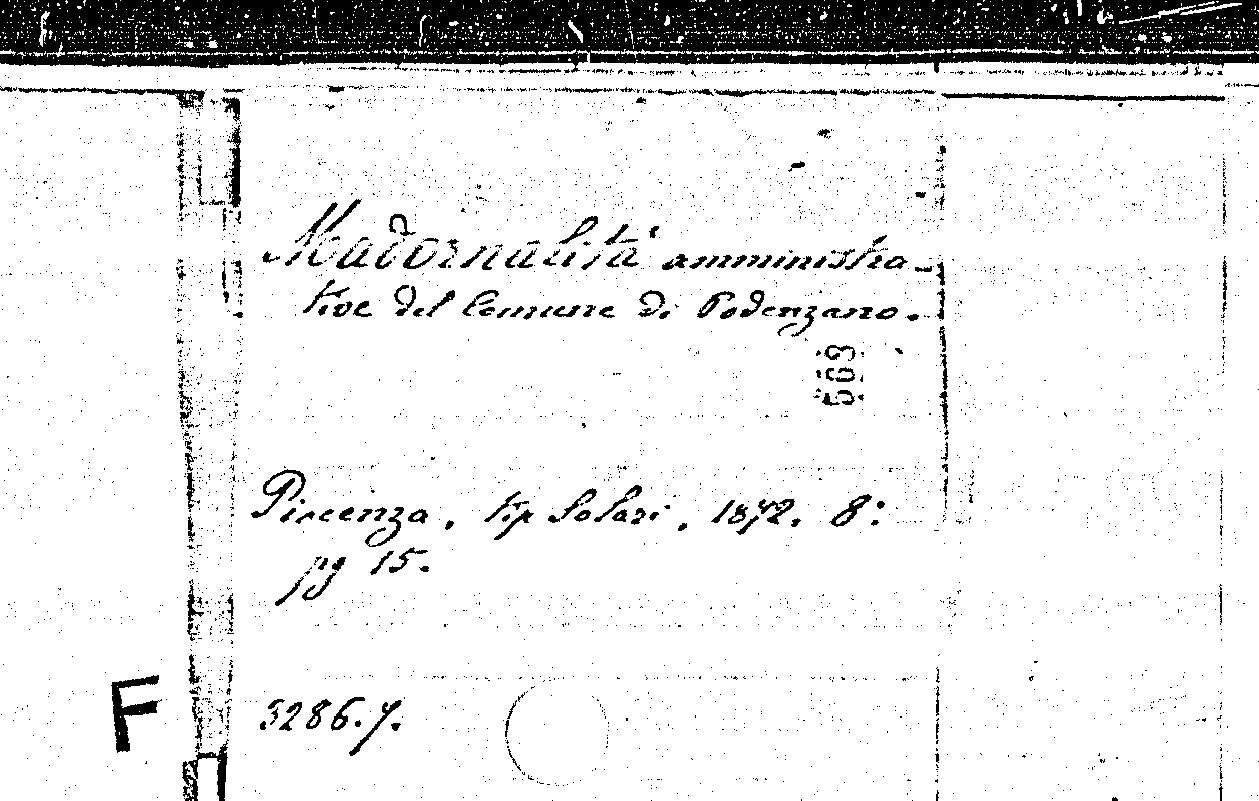 Madornalità amministra-
tive del Comune di Podenzano.
563
Piacenza, tip Solari, 1872. 8:
pg 15.
F 3286.7.